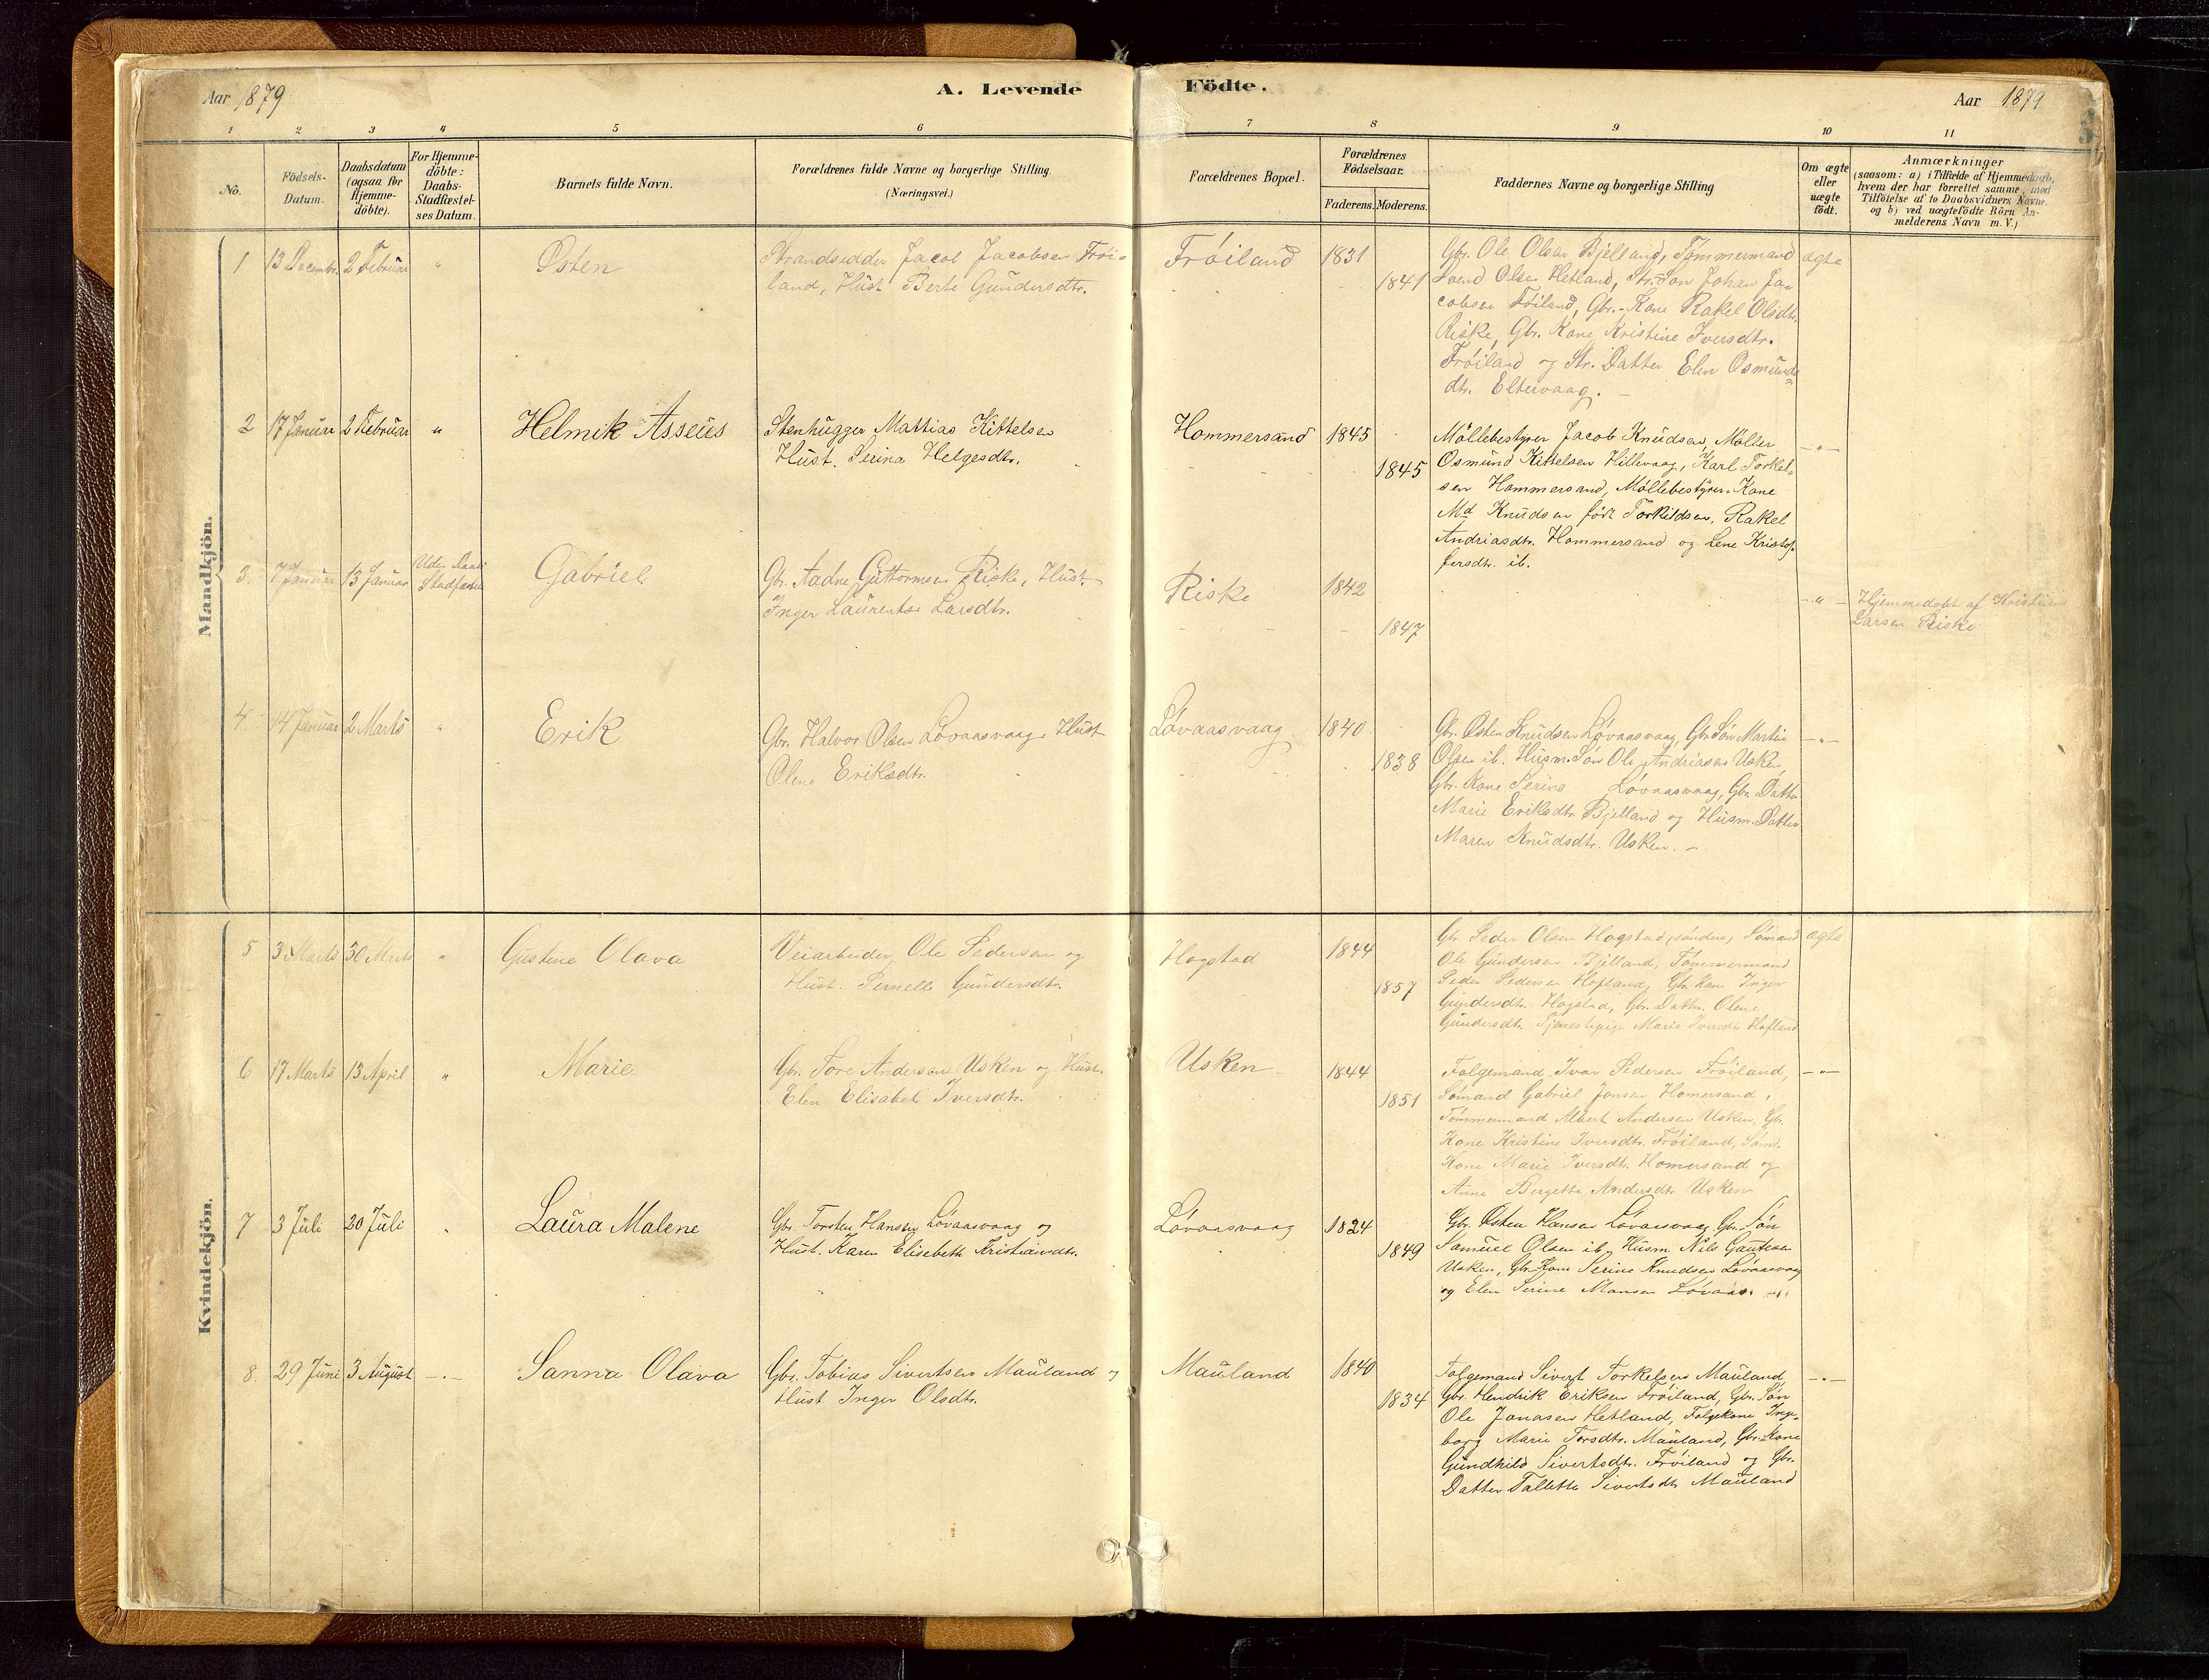 Aar 1879
A. Levende Födte.
Aar 1879
1 2 3 4 5 6 7 8 9 10 11
No.
Födsels-
Datum.
Daabsdatum
(ogsaa for
Hjemme-
döbte).
For Hjemme-
döbte:
Daabs-
Stadfæstel-
ses Datum.
Barnets fulde Navn.
Forældrenes fulde Navne og borgerlige Stilling.
(Næringsvei.)
Forældrenes Bopæl.
Forældrenes
Födselsaar.
Faderens. Moderens.
Faddernes Navne og borgerlige Stilling
Om ægte
eller
uægte
födt.
Anmærkninger
(saasom: a) i Tilfælde af Hjemmedaab,
hvem der har forrettet samme, med
Tilföielse af to Daabsvidners Navne.
og b) ved uægtefödte Börn An-
melderens Navn m.V.)
Mandkjön.
1 13 Decembr. 2 Februar " Østen
Strandsidder Jacob Jacobsen Frøi-
land, Hust. Berte Gundersdtr.
Frøiland 1831
1841
Gbr. Ole Olsen Bjelland, Tømmermand
Svend Olsen Hetland, Str. Søn Johan Ja-
cobsen Frøiland, Gbr.-Kone Rakel Olsdtr.
Riske, Gbr. Kone Kristine Iversdtr.
Frøiland og Str. Datter Elen Osmunds
dtr. Eltervaag. -
ægte
2 17 Januar 2 Februar " Helmik Asseus
Stenhugger Mattias Kittelsen
Hust. Serina Helgesdtr.
Hommersand 1845
1845
Møllebestyrer Jacob Knudsen, Møller
Osmund Kittelsen Hillevaag, Karl Torkel-
sen Hammersand, Møllebestyrer-Kone
Md Knudsen født Torkildsen, Rakel
Andriasdtr. Hommersand og Lene Kristof-
fersdtr. ib.
- " -
3. 7 Januar 13 Januar
Uden Daabs
Stadfæstelse
Gabriel
Gbr. Aadne Guttormsen Riske, Hust.
Inger Laurentse Larsdtr.
Riske 1842
1847
- " -
Hjemmedøbt af Kristian
Larsen Riske
4 14 Januar 2 Marts " Erik
Gbr. Halvor Olsen Løvaasvaag Hust
Olene Eriksdtr.
Løvaasvaag 1840
1838
Gbr. Østen Knudsen Løvaasvaag, Gbr Søn Martin
Olsen ib. Husm. Søn Ole Andriasen Usken,
Gbr. Kone Serine Løvaasvaag, Gbr. Datter
Marie Eriksdtr. Bjelland og Husm. Datter
Maren Knudsdtr. Usken. -
- " -
Kvindekjön.
5 3 Marts 30 Marts " Gustine Olava
Veiarbeider Ole Pedersen og
Hust. Pernelle Gundersdtr.
Hogstad 1844
1857
Gbr. Peder Olsen Hogstad, søndre, Sømand
Ole Gundersen Bjelland, Tømmermand
Peder Pedersen Hofland, Gbr. Kone Inger
Gundersdtr. Hogstad, Gbr. Datter Olene
Gundersdtr. Tjenestepige Marie Iversdtr. Hofland
ægte
6 17 Marts 13 April " Marie
Gbr. Tore Andersen Usken og Hust.
Elen Elisabet Iversdtr.
Usken 1844
1851
Folgemand Ivar Pedersen Frøiland,
Sømand Gabriel Jonsen Homersand,
Tømmermand Albert Andersen Usken, Gbr.
Kone Kristine Iversdtr. Frøiland, Søm.
Kone Marie Iversdtr. Homersand og
Anne Bergette Andersdtr. Usken
- " -
7 3 Juli 20 Juli " Laura Malene
Gbr. Torsten Hansen Løvaasvaag og
Hust. Karen Elisebeth Kristiansdtr.
Løvaasvaag 1824
1849
Gbr. Østen Hansen Løvaasvaag, Gbr. Søn
Samuel Olsen ib. Husm. Nils Gautesen
Usken, Gbr. Kone Serine Knudsen Løvaasvaag
og Elen Serine Monsen Løvaas.
8. 29 Juni 3 August - " - Sanna Olava
Gbr. Tobias Sivertsen Mauland og
Hust Inger Olsdtr.
Mauland 1840
1834
Folgemand Sivert Torkelsen Mauland
Gbr. Hendrik Eriksen Frøiland, Gbr. Søn
Ole Jonasen Hetland, Folgekone Inge-
borg Marie Torsdtr. Mauland, Gbr. Kone
Gundhild Sivertsdtr. Frøiland og Gbr.
Datter Tallette Sivertsdtr Mauland
- " -